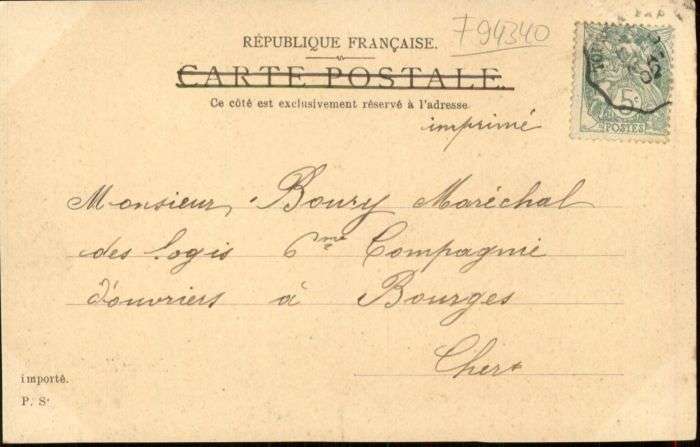 794340
RÉPUBLIQUE FRANÇAISE.
CARTE POSTALE.
Ce côté est exclusivement réservé à l'adresse
imprimé
5c
POSTES
Monsieur Boury Maréchal
des logis 6me Compagnie
d'ouvriers à Bourges
Cher
importé.
P. S.